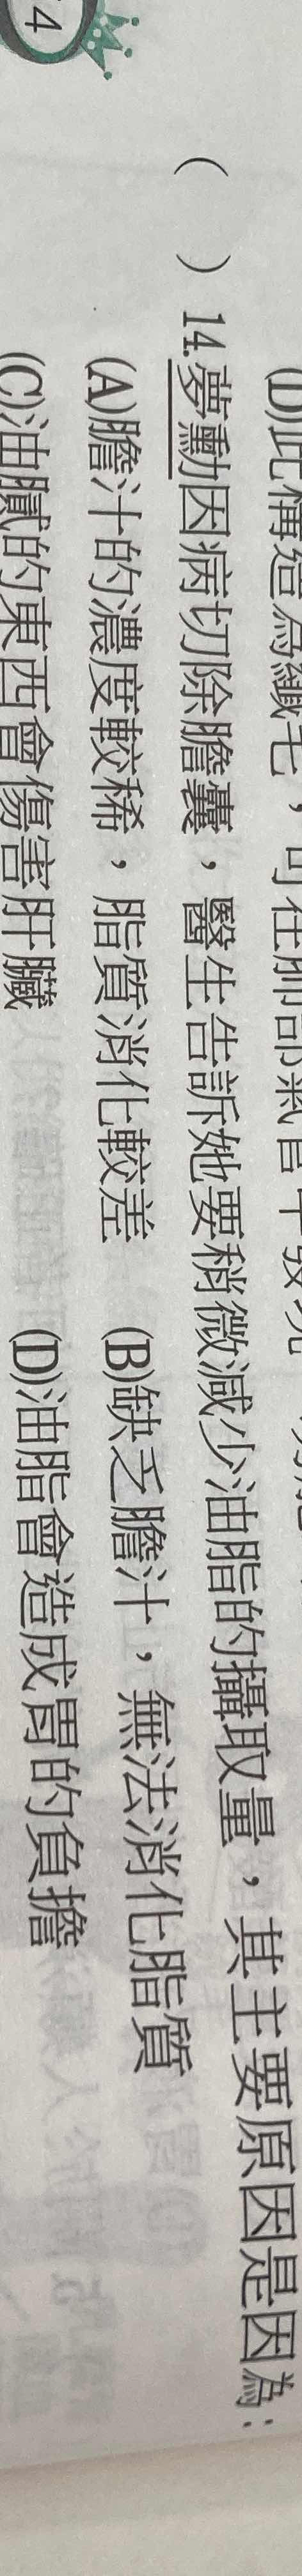 4
(D)此構造為纖毛，可在肺部氣管中發現
（　）14.夢勳因病切除膽囊，醫生告訴她要稍微減少油脂的攝取量，其主要原因是因為：
(A)膽汁的濃度較稀，脂質消化較差　(B)缺乏膽汁，無法消化脂質
(C)油膩的東西會傷害肝臟　(D)油脂會造成胃的負擔